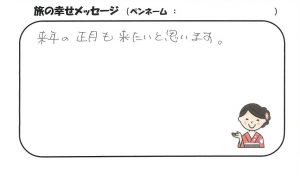 旅の幸せメッセージ （ペンネーム： ）
来年の正月も来たいと思います。